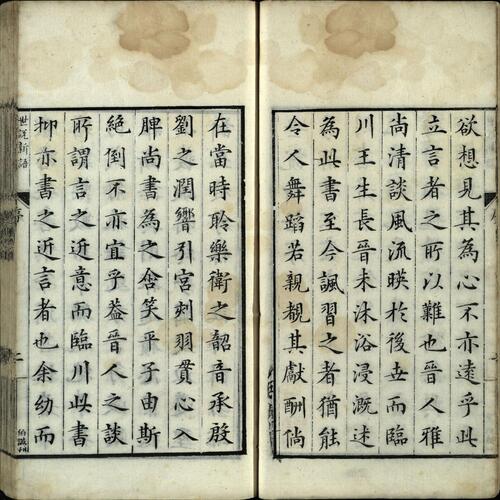 欲想見其為心不亦遠乎此
立言者之所以難也晉人雅
尚清談風流暎於後世而臨
川王生長晉末沐浴浸溉述
為此書至今諷習之者猶能
令人舞蹈若親覩其獻酬倘
在當時聆樂衛之韶音承殷
劉之潤響引宮刻羽貫心入
脾尚書為之含笑平子由斯
絶倒不亦宜乎葢晉人之談
所謂言之近意而臨川此書
抑亦書之近言者也余幼而
世説新語
序
二